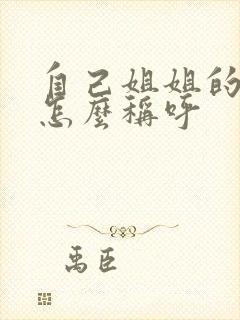 自己姐姐的
怎麼稱呼
禹臣